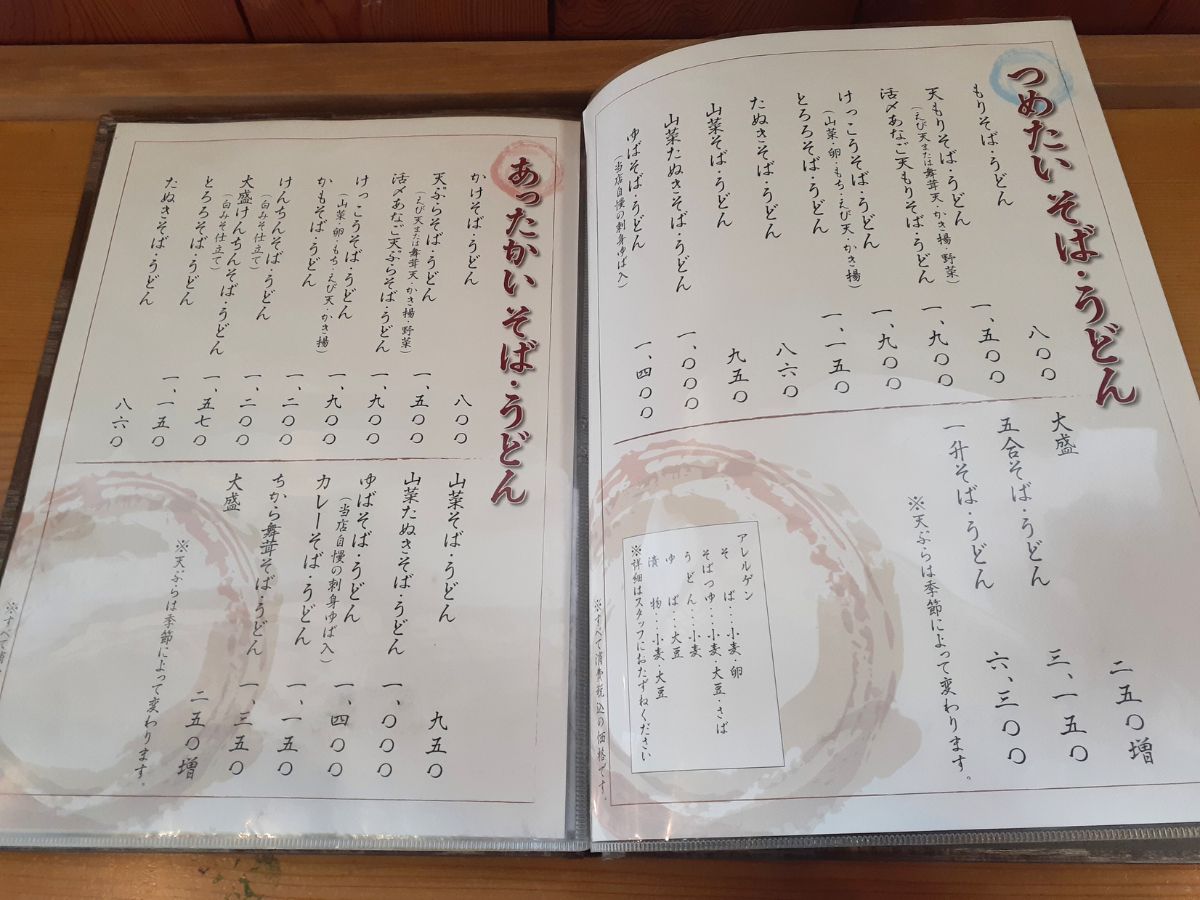 つめたいそば・うどん
もりそば・うどん 八〇〇
天もりそば・うどん 一、五〇〇
（えび天または舞茸天・かき揚・野菜）
活〆あなご天もりそば・うどん 一、九〇〇
けっこうそば・うどん 一、九〇〇
（山菜・卵・もち・えび天・かき揚）
とろろそば・うどん 一、一五〇
たぬきそば・うどん 八六〇
山菜そば・うどん 九五〇
山菜たぬきそば・うどん 一、〇〇〇
ゆばそば・うどん 一、四〇〇
（当店自慢の刺身ゆば入）
大盛 二五〇増
五合そば・うどん 三、一五〇
一升そば・うどん 六、三〇〇
※天ぷらは季節によって変わります。
アレルゲン
そば・・・小麦・卵
そばつゆ・・・小麦・大豆・さば
うどん・・・小麦
ゆば・・・大豆
漬物・・・小麦・大豆
※詳細はスタッフにおたずねください
※すべて消費税込の価格です。
あったかいそば・うどん
かけそば・うどん 八〇〇
天ぷらそば・うどん 一、五〇〇
（えび天または舞茸天・かき揚・野菜）
活〆あなご天ぷらそば・うどん 一、九〇〇
けっこうそば・うどん 一、九〇〇
（山菜・卵・もち・えび天・かき揚）
かもそば・うどん 一、二〇〇
けんちんそば・うどん 一、二〇〇
（白みそ仕立て）
大盛けんちんそば・うどん 一、五七〇
（白みそ仕立て）
とろろそば・うどん 一、一五〇
たぬきそば・うどん 八六〇
山菜そば・うどん 九五〇
山菜たぬきそば・うどん 一、〇〇〇
ゆばそば・うどん 一、四〇〇
（当店自慢の刺身ゆば入）
カレーそば・うどん 一、一五〇
ちから舞茸そば・うどん 一、三五〇
大盛 二五〇増
※天ぷらは季節によって変わります。
※すべて消